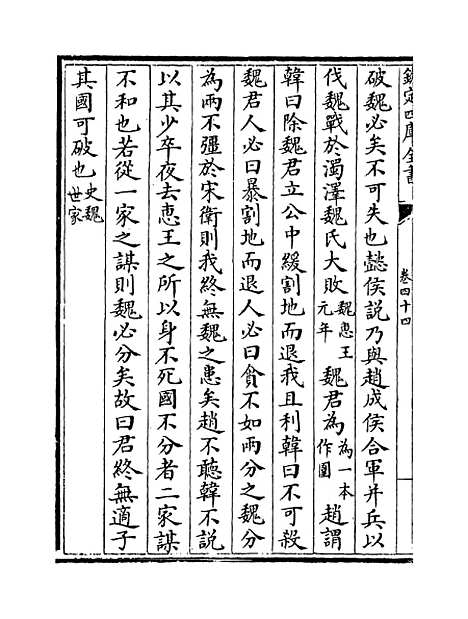 欽定四庫全書
卷四十四
破魏必矣不可失也懿侯說乃與趙成侯合軍并兵以
伐魏戰於濁澤魏氏大敗魏惠王元年魏君為一本為作圍趙謂
韓曰除魏君立公中緩割地而退我且利韓曰不可殺
魏君人必曰暴割地而退人必曰貪不如兩分之魏分
為兩不彊於宋衛則我終無魏之患矣趙不聽韓不說
以其少卒夜去惠王之所以身不死國不分者二家謀
不和也若從一家之謀則魏必分矣故曰君終無適子
其國可破也史魏世家